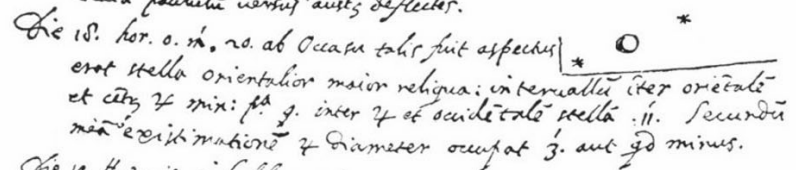 versus austr deflectes.
Die 18. hor. 0. m. 20. ab Occasu talis fuit aspectus
erat stella orientalior maior reliqua: intervallũ ĩter oriẽtalẽ
et cẽtr ♃ min: pᵃ 9. inter ♃ et occidẽtalẽ stellã .11. Secundũ
meã existimationẽ ♃ Diameter occupat 3. aut qd minus.
Die